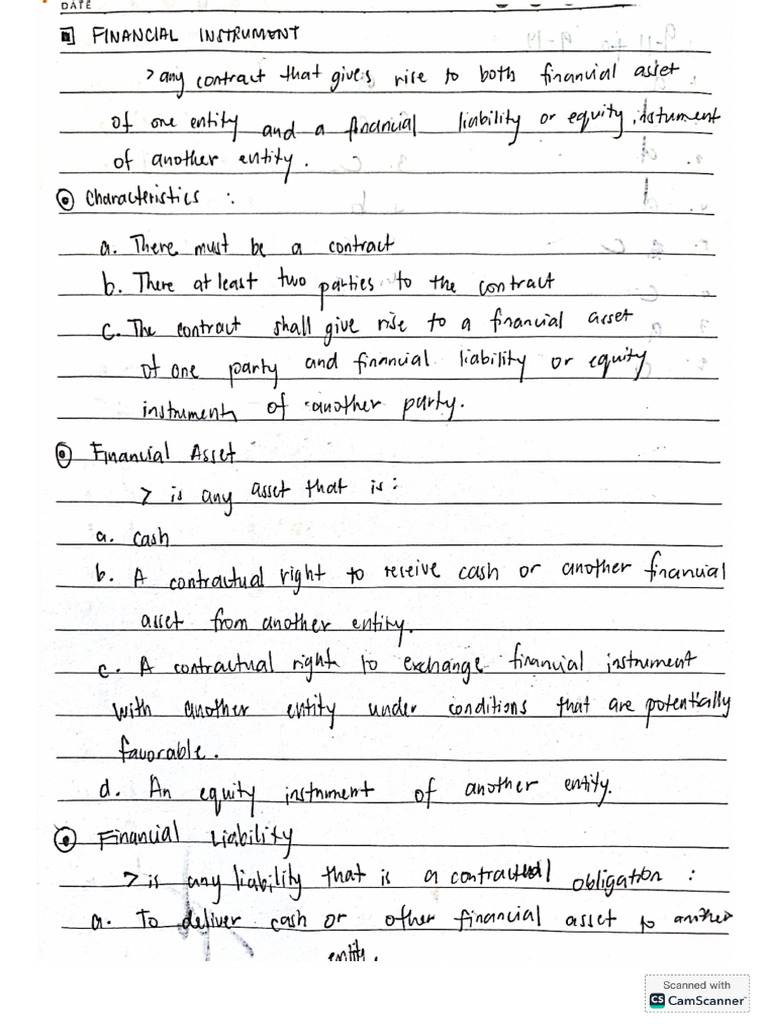 DATE
FINANCIAL INSTRUMENT
> any contract that gives rise to both financial asset
of one entity and a financial liability or equity instument
of another entity.
Characteristics :
a. There must be a contract
b. There at least two parties to the contract
c. The contract shall give rise to a financial asset
of one party and financial liability or equity
instrument of another party.
Financial Asset
> is any asset that is :
a. cash
b. A contractual right to receive cash or another financial
asset from another entity.
c. A contractual right to exchange financial instrument
with another entity under conditions that are potentially
favorable.
d. An equity instrument of another entity.
Financial Liability
> is any liability that is a contractual obligation :
a. To deliver cash or other financial asset to another
entity.
Scanned with
CS CamScanner